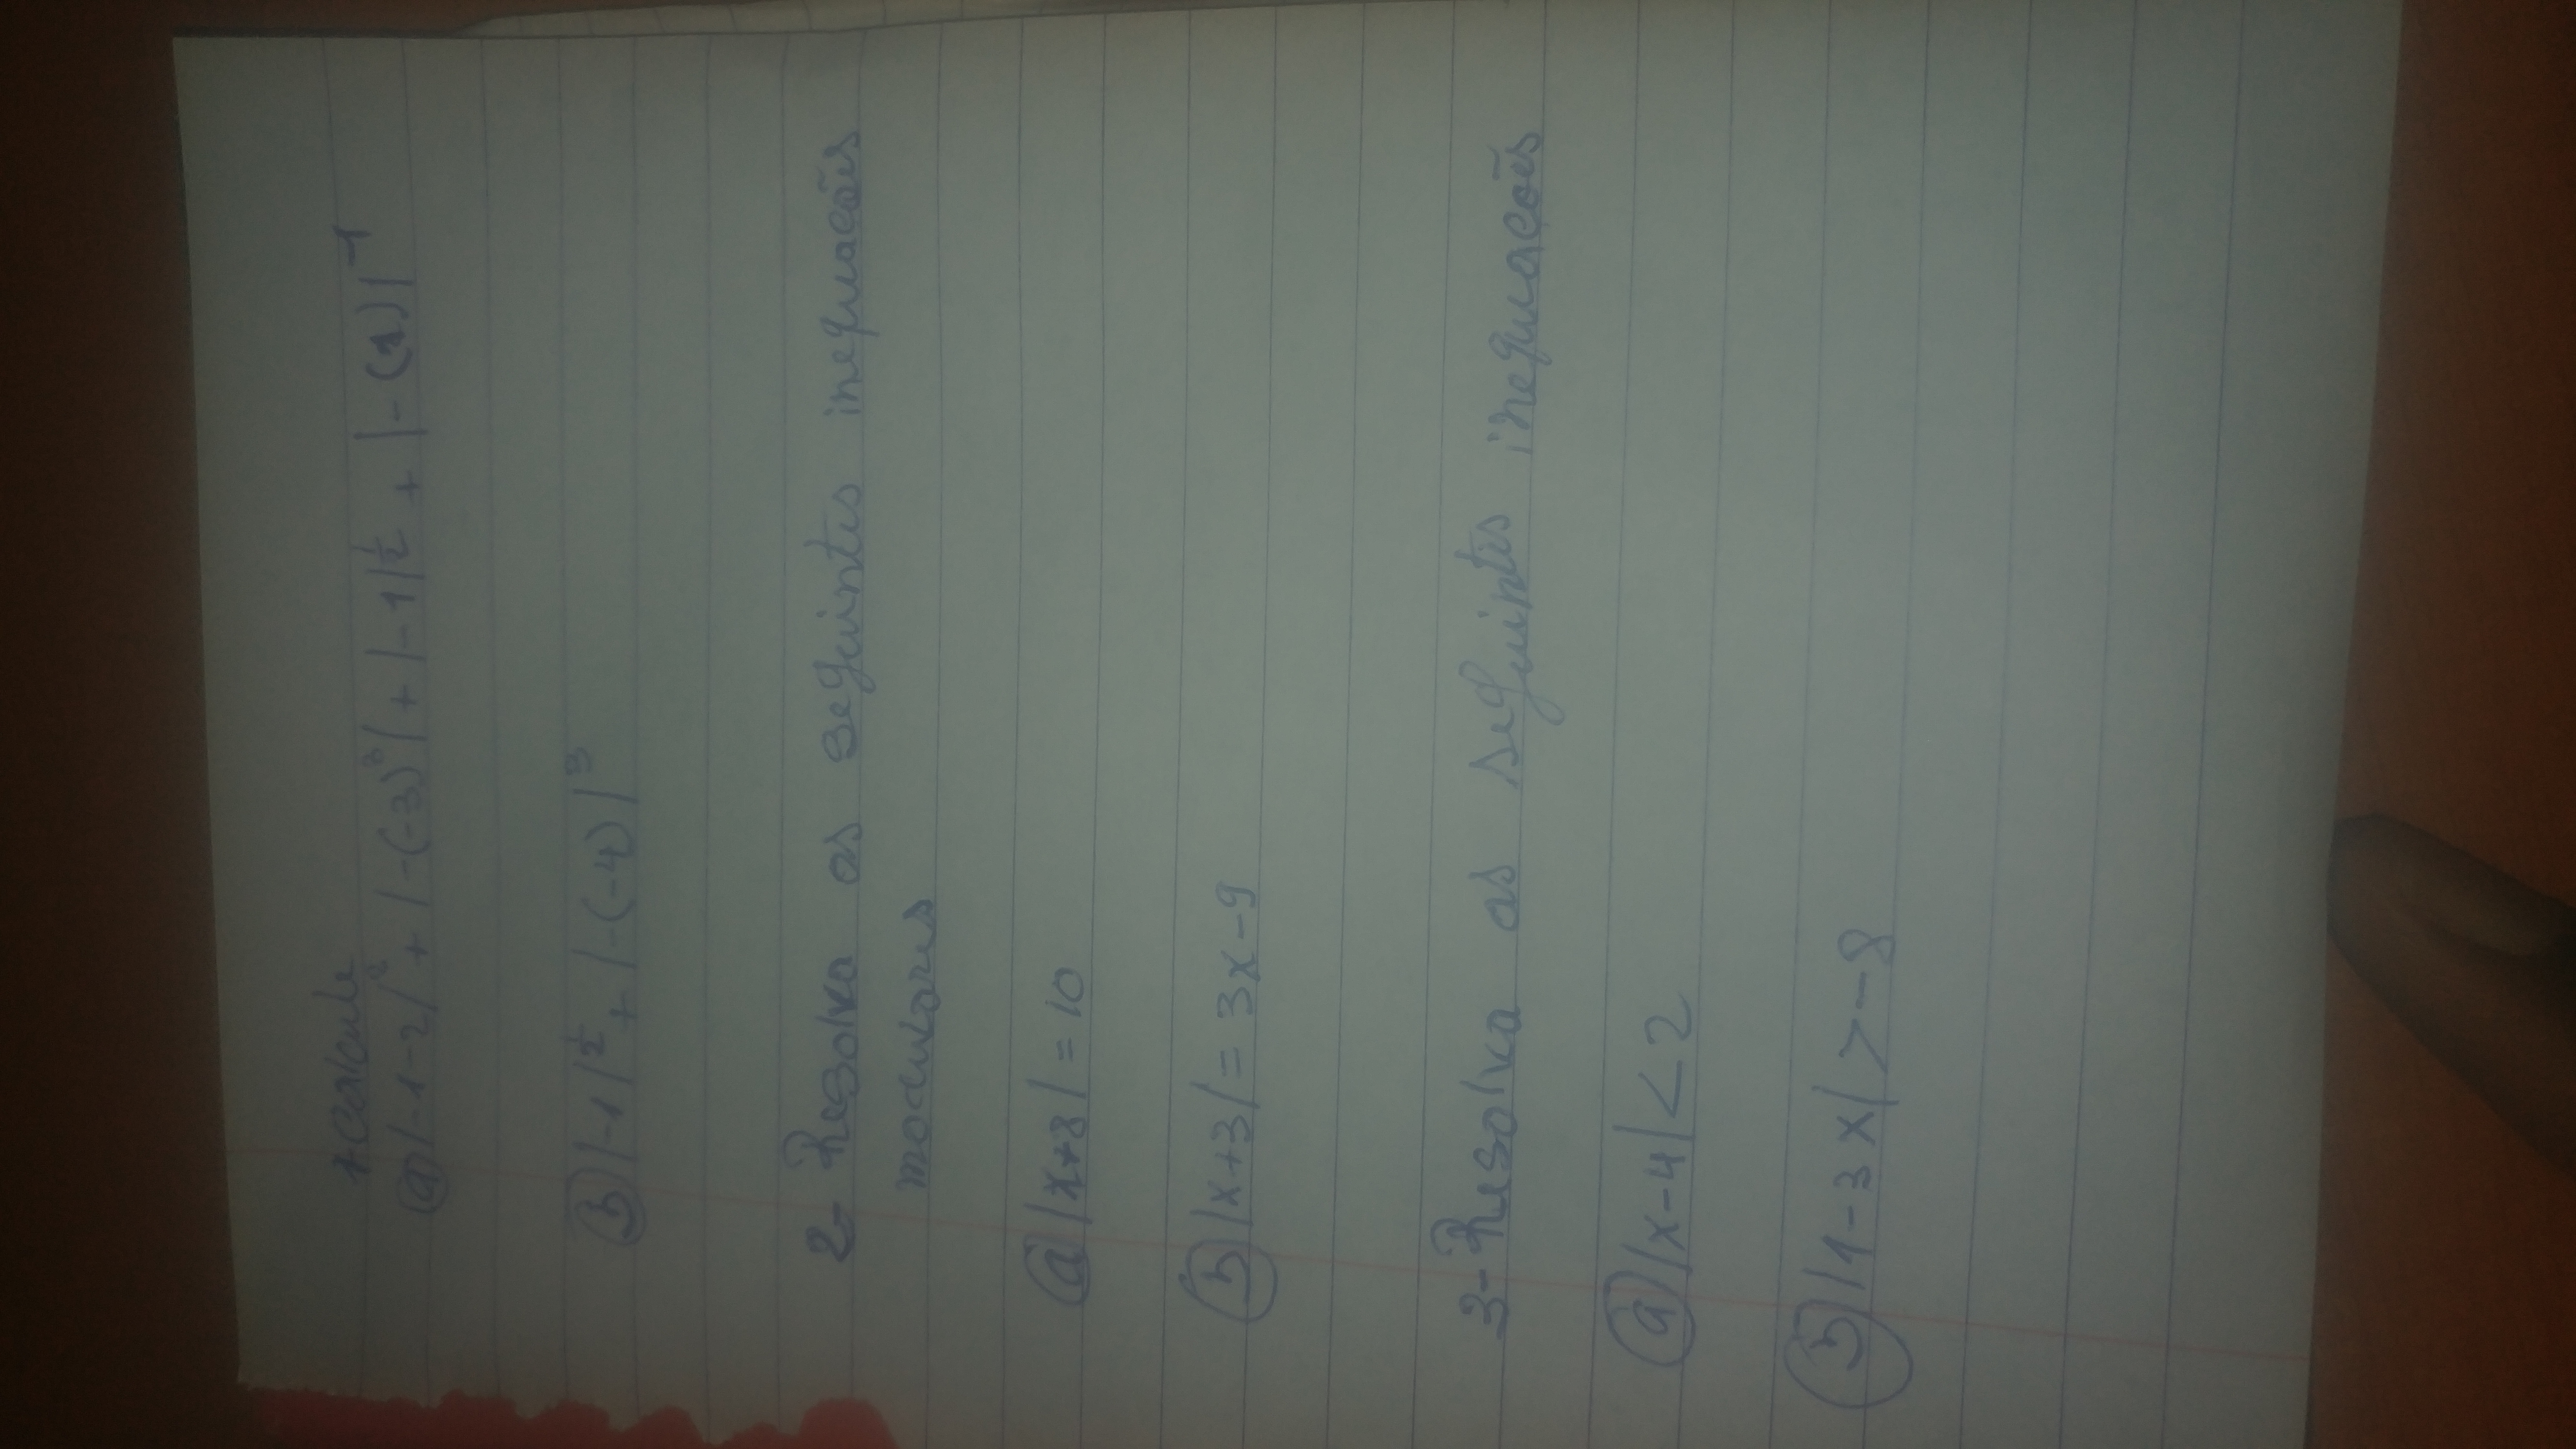 1-Calcule
a) |-1-2|² + |-(-3)³| + |-1|^½ + |-(1)|⁻¹
b) |-1|^½ + |-(-4)|³
2- Resolva as seguintes inequações
modulares
a) |x+8| = 10
b) |x+3| = 3x-9
3- Resolva as seguintes inequações
a) |x-4| < 2
b) |1-3x| > -8